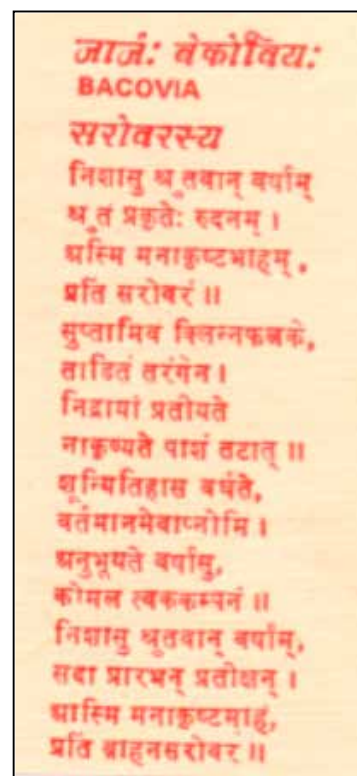 जार्ज: बेकोविय:
BACOVIA
सरोवरस्य
निशासु श्रुतवान् वर्षाम्
श्रुतं प्रकृतेः रुदनम् ।
अस्मि मनाकृष्टमाहम्,
प्रति सरोवरं ॥
सुप्तामिव क्लिन्नफलके,
ताडितं तरंगेन ।
निद्रायां प्रतीयते
नाकृष्यते पाशं तटात् ॥
शून्यितिहास वर्धते,
वर्तमानमेवाप्नोमि ।
अनुभूयते वर्षासु,
कोमल त्वककम्पनं ॥
निशासु श्रुतवान् वर्षाम्,
सदा प्रारभन् प्रतीक्षन् ।
आस्मि मनाकृष्टमाहं,
प्रति ब्राहनसरोवर ॥